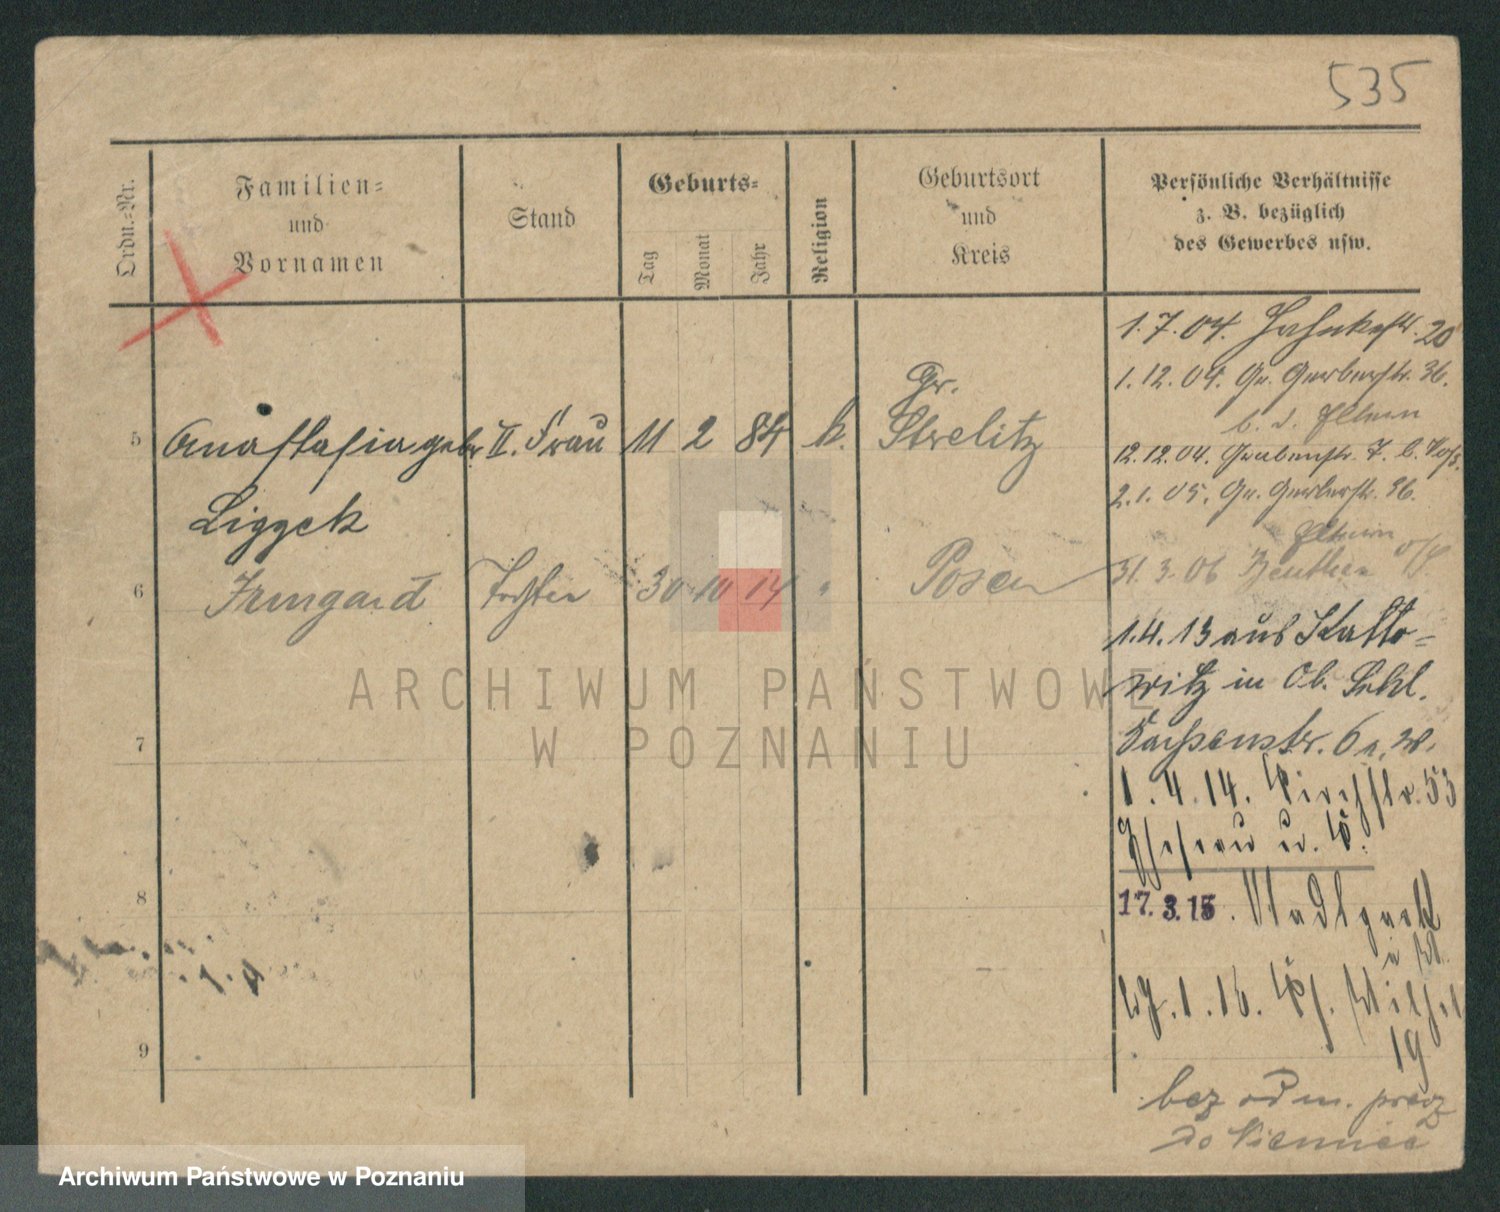 535
Ordn.-Nr.
Familien-
und
Vornamen
Stand
Geburts-
Tag
Monat
Jahr
Religion
Geburtsort
und
Kreis
Persönliche Verhältnisse
z. B. bezüglich
des Gewerbes usw.
1.7.04. 20
1.12.04. Gr. Gerberstr. 36.
b. d. Eltern
5 Anastasia geb. II. Frau 11 2 84 k. Gr. Strelitz
12.12.04. Grabenstr. 7. b.
Liggek
2.1.05. Gr. Gerberstr. 36.
Eltern
6 Irmgard Tochter 30 10 14 " Posen
31.3.06 Beuthen o/S
1.4.13 aus Katto-
witz in Ob. Schl.
Sachsenstr. 6
7
1.4.14. Kirchstr. 53
8
17.3.15.
1.4
1.16. 
19
9
bez odm. przez
do Niemiec
ARCHIWUM PAŃSTWOWE
W POZNANIU
Archiwum Państwowe w Poznaniu